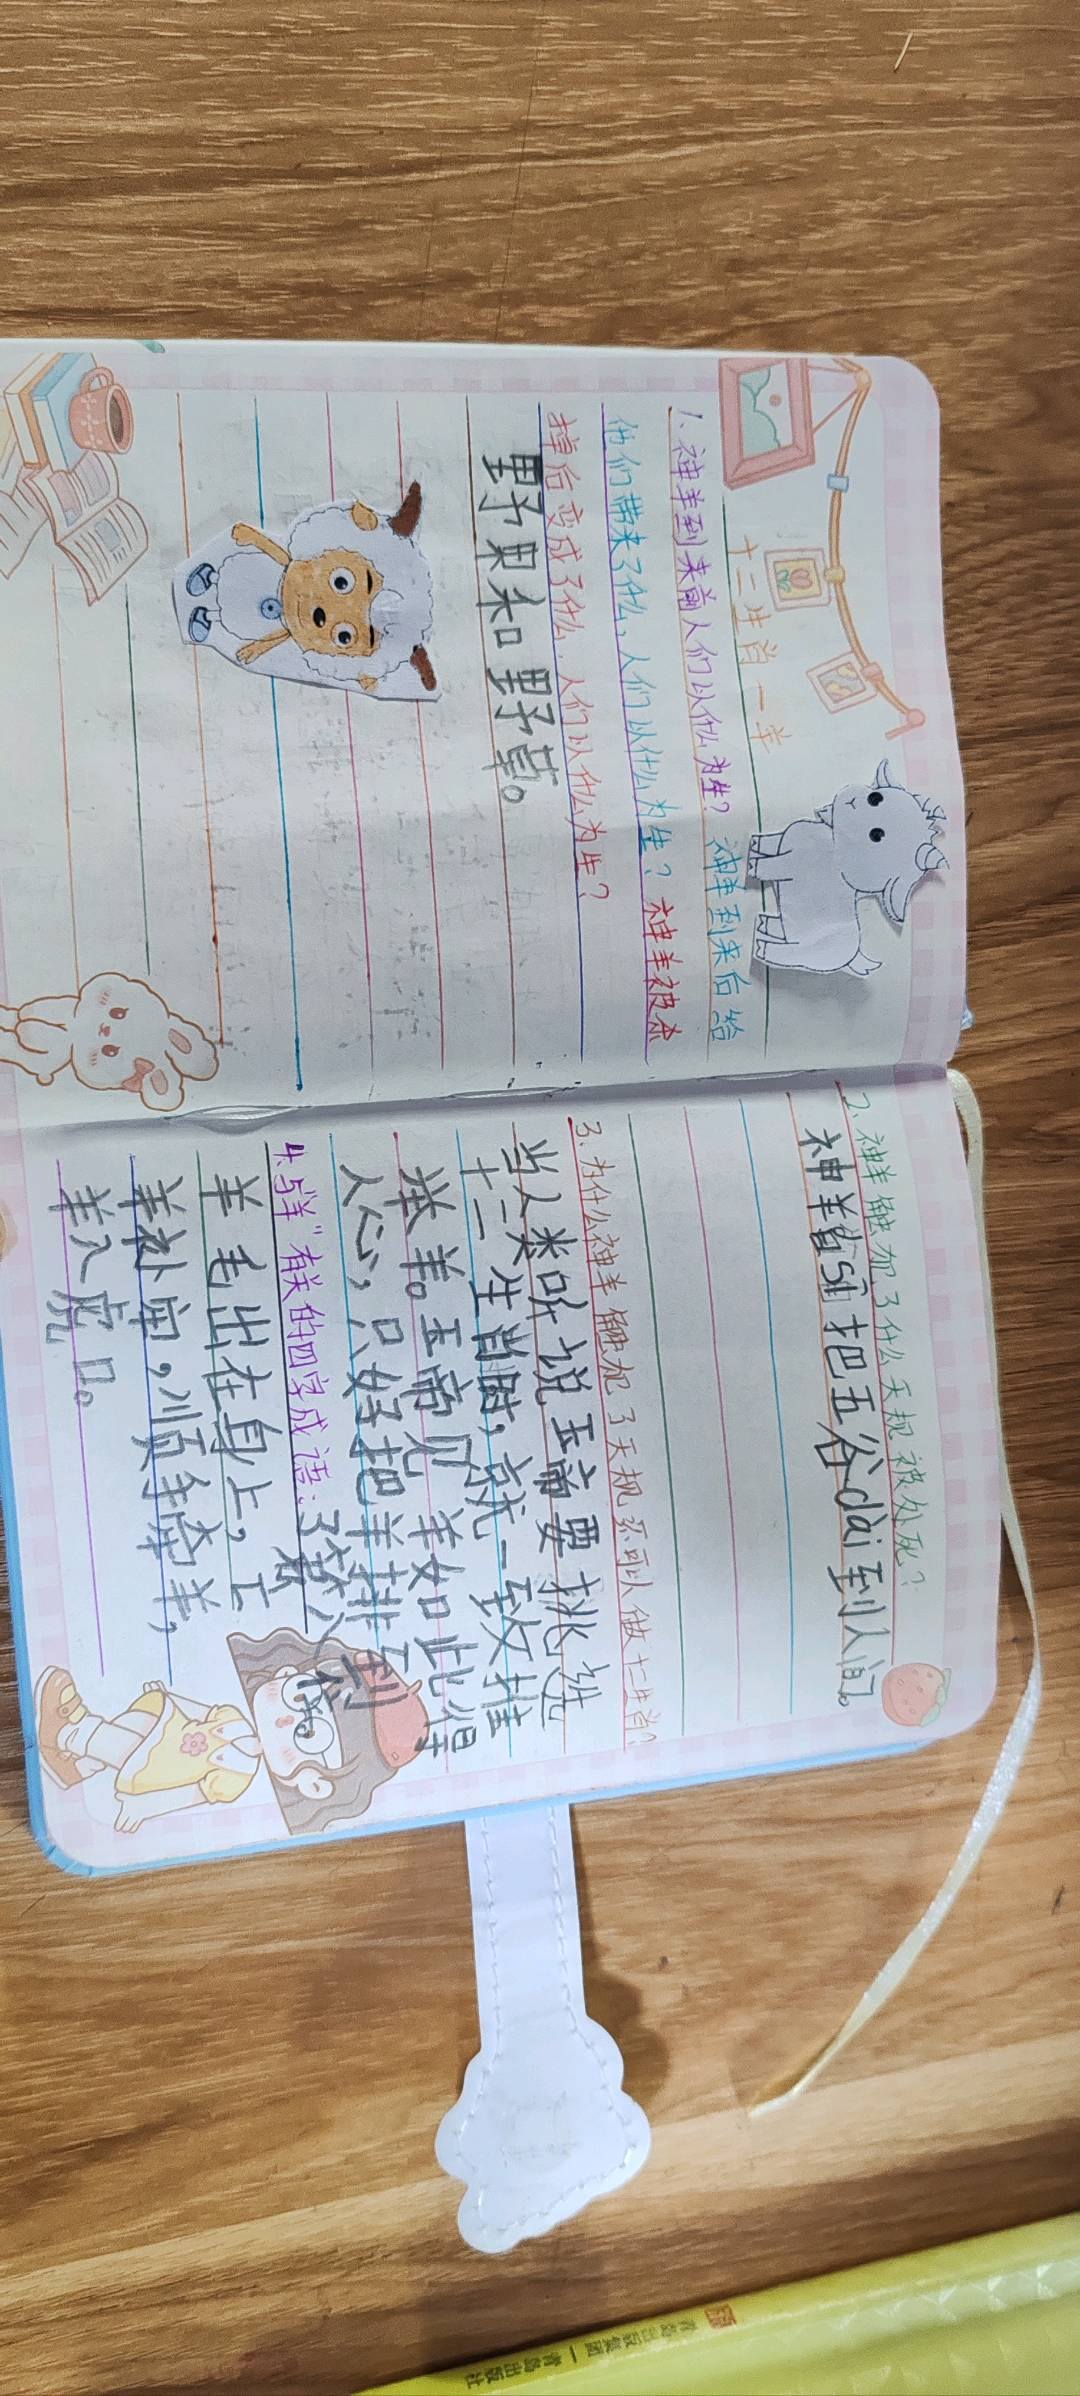 十二生肖一羊
1、神羊到来前人们以什么为生？神羊到来后给
他们带来了什么，人们以什么为生？神羊被杀
掉后变成了什么，人们以什么为生？
野果和野草。
2、神羊触犯了什么天规被处死？
神羊省sī把五谷dài到人间。
3、为什么神羊触犯了天规还可以做十二生肖？
当人类听说玉帝要挑选
十二生肖时，就一致推
举羊。玉帝见羊如此得
人心，只好把羊排到
了第八位。
4.与“羊”有关的四字成语：
羊毛出在身上，亡
羊补牢，顺手牵羊，
羊入虎口。
青岛出版集团 | 青岛出版社